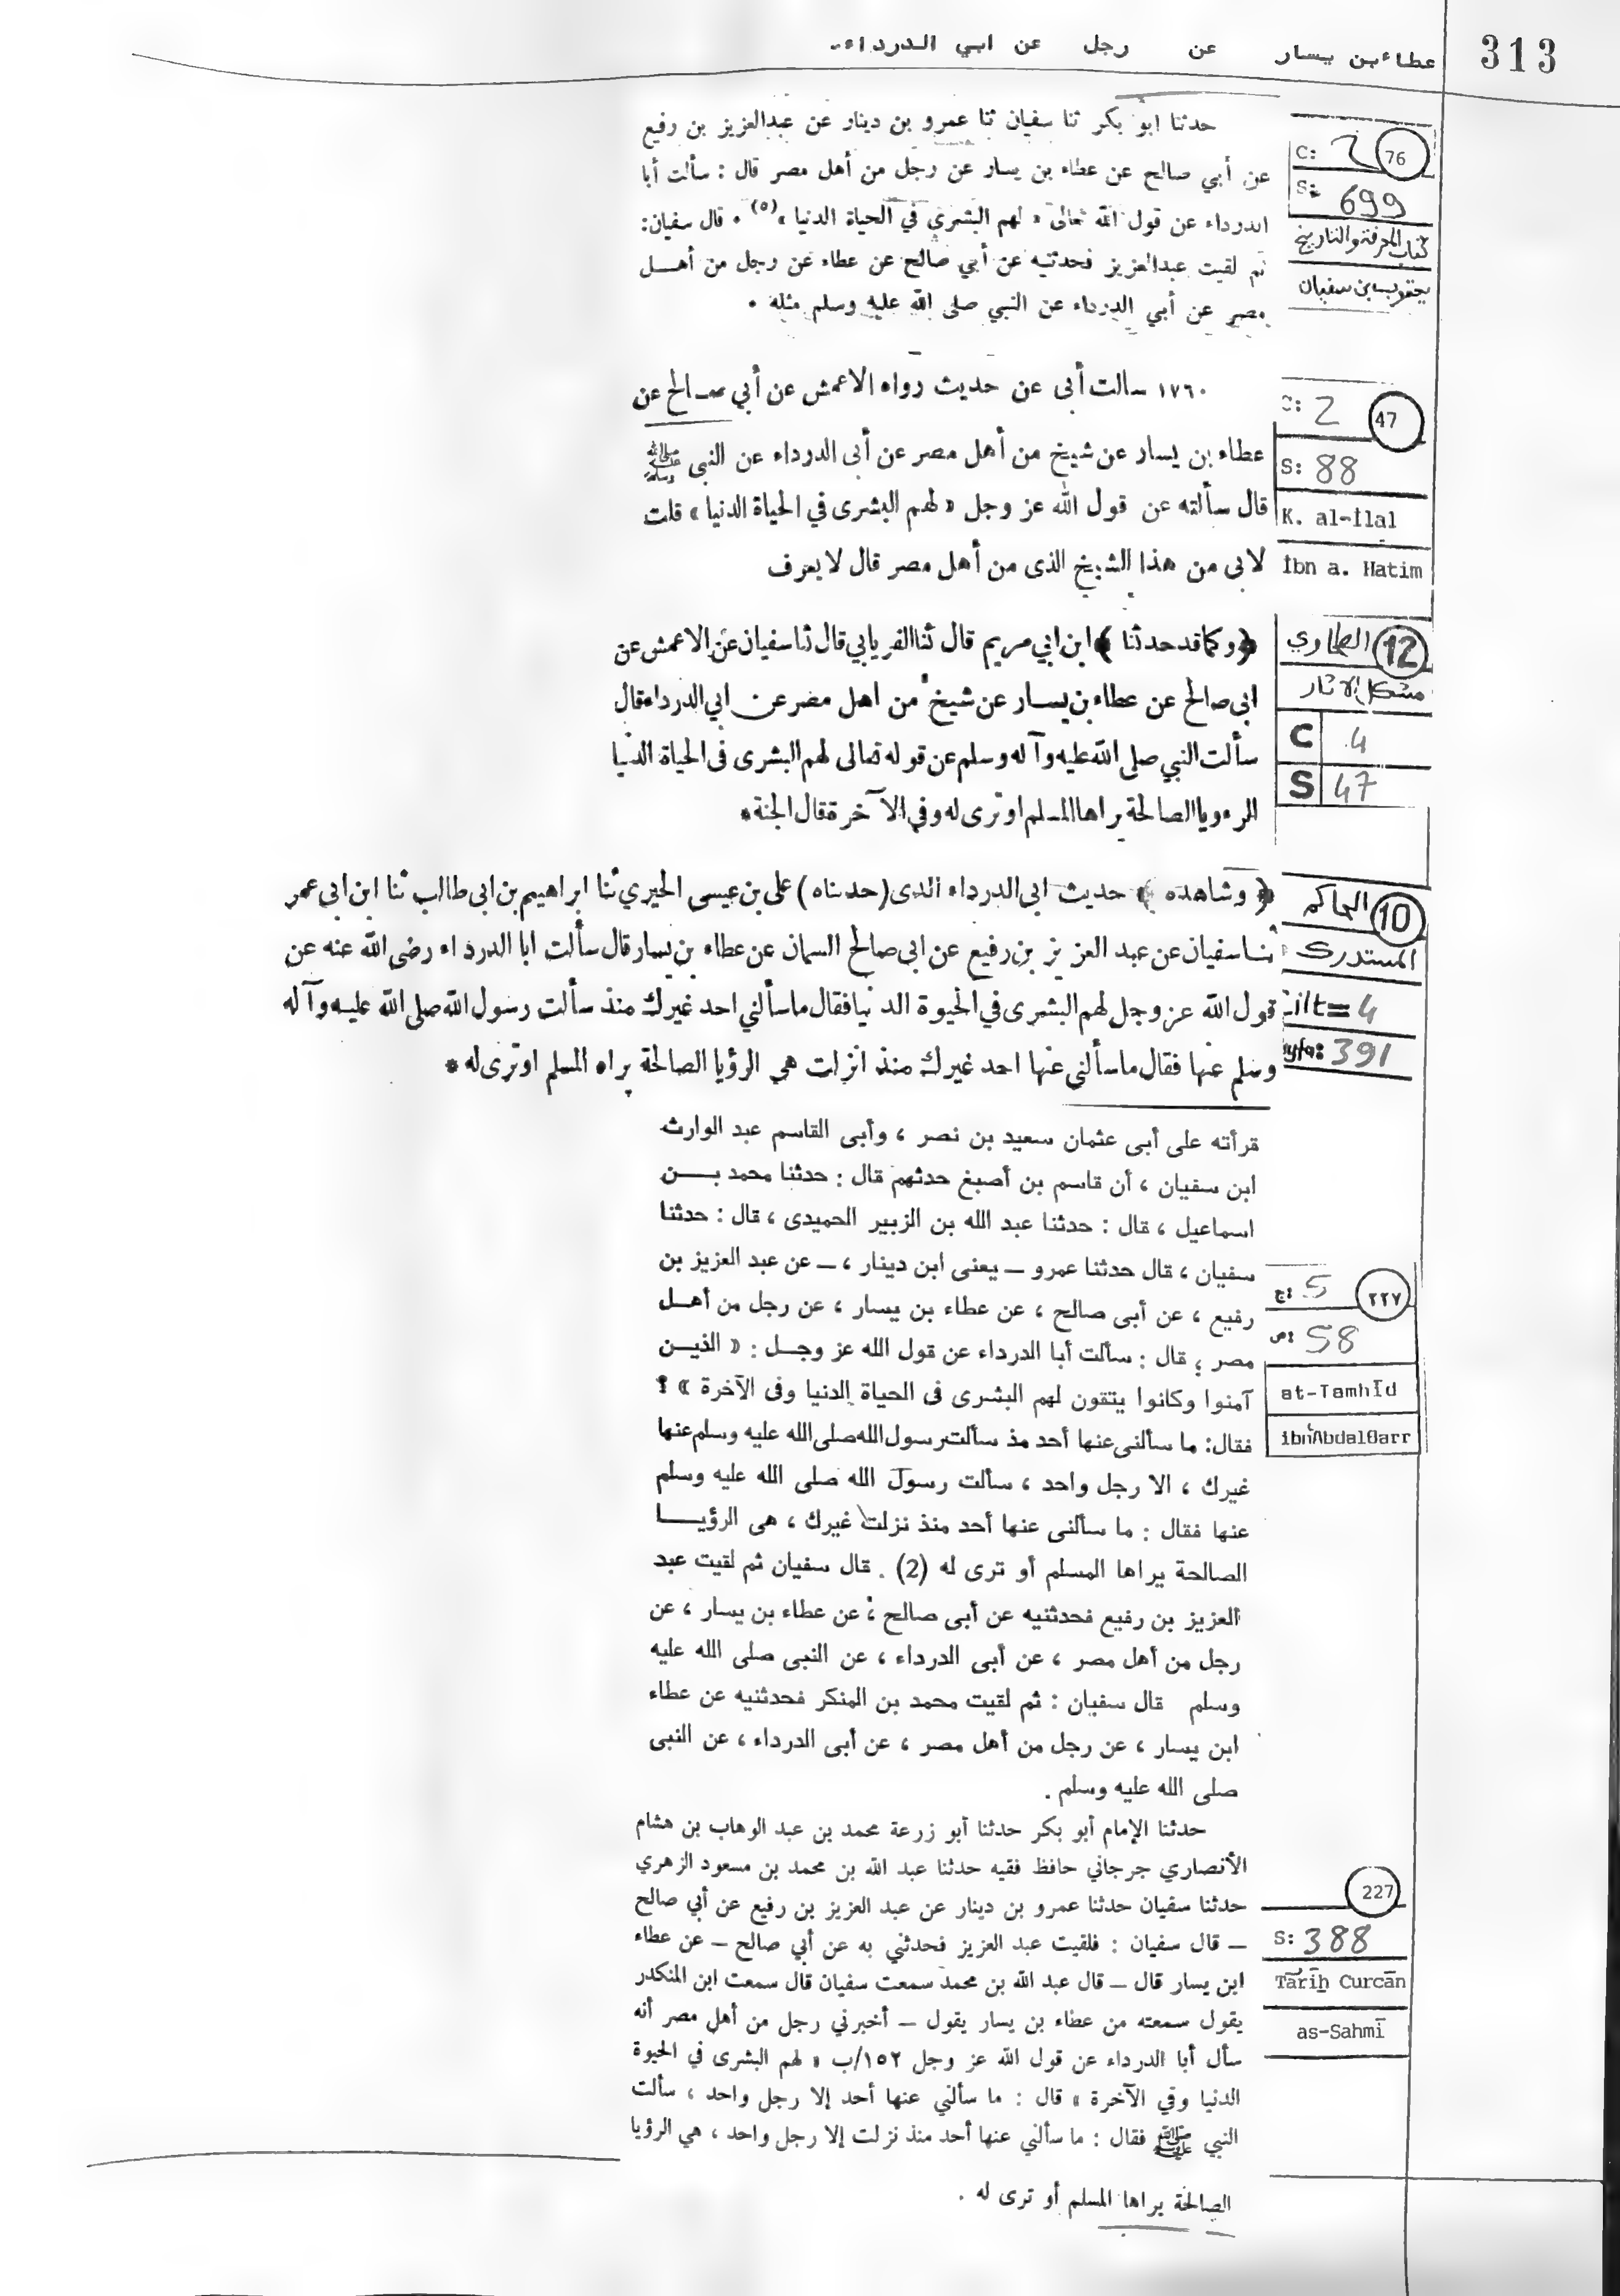 313
عطاء بن يسار عن رجل عن ابي الدرداء.
76
C: 2
S: 699
كتاب المعرفة والتاريخ
يعقوب بن سفيان
حدثنا ابو بكر ثنا سفيان ثنا عمرو بن دينار عن عبدالعزيز بن رفيع
عن أبي صالح عن عطاء بن يسار عن رجل من أهل مصر قال : سألت أبا
الدرداء عن قول الله تعالى « لهم البشرى في الحياة الدنيا »(٥) . قال سفيان:
ثم لقيت عبدالعزيز فحدثنيه عن أبي صالح عن عطاء عن رجل من أهــل
مصر عن أبي الدرداء عن النبي صلى الله عليه وسلم مثله .
47
C: 2
S: 88
K. al-İlal
İbn a. Hatim
١٧٦٠ سالت أبى عن حديث رواه الاعمش عن أبي صـالح عن
عطاء بن يسار عن شيخ من أهل مصر عن أبى الدرداء عن النبى ﷺ
قال سألته عن قول الله عز وجل « لهم البشرى في الحياة الدنيا » قلت
لابى من هذا الشيخ الذى من أهل مصر قال لا يعرف
12
الطحاوي
مشكل الآثار
C 4
S 47
﴿ وكما قد حدثنا ﴾ ابن ابي مريم قال ثنا الفريابي قال ثنا سفيان عن الاعمش عن
ابى صالح عن عطاء بن يسـار عن شيخ من اهل مصر عن ابي الدرداء قال
سألت النبي صلى الله عليه وآله وسلم عن قوله تعالى لهم البشرى فى الحياة الدنيا
الرءويا الصالحة يراها المسلم او ترى له وفي الآخرة قال الجنة .
10
الحاكم
المستدرك
Cilt= 4
Sayfa: 391
﴿ وشاهده ﴾ حديث ابى الدرداء الذى (حدثناه) على بن عيسى الحيري ثنا ابراهيم بن ابى طالب ثنا ابن ابى عمر
ثنـا سفيان عن عبد العزيز بن رفيع عن ابى صالح السمان عن عطاء بن يسار قال سألت ابا الدرداء رضى الله عنه عن
قول الله عز وجل لهم البشرى في الحيوة الدنيا فقال ما سألني احد غيرك منذ سألت رسول الله صلى الله عليـه وآله
وسلم عنها فقال ما سألنى عنها احد غيرك منذ انزلت هي الرؤيا الصالحة يراه المسلم او ترى له .
٢٢٧
ج: 5
ص: 58
at-Tamhīd
ibnʿAbdalBarr
قرأته على أبى عثمان سعيد بن نصر ، وأبى القاسم عبد الوارث
ابن سفيان ، أن قاسم بن أصبغ حدثهم قال : حدثنا محمد بـــن
اسماعيل ، قال : حدثنا عبد الله بن الزبير الحميدى ، قال : حدثنا
سفيان ، قال حدثنا عمرو — يعنى ابن دينار ، — عن عبد العزيز بن
رفيع ، عن أبى صالح ، عن عطاء بن يسار ، عن رجل من أهــل
مصر ، قال : سألت أبا الدرداء عن قول الله عز وجــل : « الذيــن
آمنوا وكانوا يتقون لهم البشرى فى الحياة الدنيا وفى الآخرة » ؟
فقال : ما سألنى عنها أحد مذ سألت رسول الله صلى الله عليه وسلم عنها
غيرك ، الا رجل واحد ، سألت رسول الله صلى الله عليه وسلم
عنها فقال : ما سألنى عنها أحد منذ نزلت غيرك ، هى الرؤيــــا
الصالحة يراها المسلم أو ترى له (2) . قال سفيان ثم لقيت عبد
العزيز بن رفيع فحدثنيه عن أبى صالح ، عن عطاء بن يسار ، عن
رجل من أهل مصر ، عن أبى الدرداء ، عن النبى صلى الله عليه
وسلم قال سفيان : ثم لقيت محمد بن المنكر فحدثنيه عن عطاء
ابن يسار ، عن رجل من أهل مصر ، عن أبى الدرداء ، عن النبى
صلى الله عليه وسلم .
227
S: 388
Tārīḫ Curcān
as-Sahmī
حدثنا الإمام أبو بكر حدثنا أبو زرعة محمد بن عبد الوهاب بن هشام
الأنصاري جرجاني حافظ فقيه حدثنا عبد الله بن محمد بن مسعود الزهري
حدثنا سفيان حدثنا عمرو بن دينار عن عبد العزيز بن رفيع عن أبي صالح
— قال سفيان : فلقيت عبد العزيز فحدثني به عن أبي صالح — عن عطاء
ابن يسار قال — قال عبد الله بن محمد سمعت سفيان قال سمعت ابن المنكدر
يقول سمعته من عطاء بن يسار يقول — أخبرني رجل من أهل مصر أنه
سأل أبا الدرداء عن قول الله عز وجل ١٥٢/ب « لهم البشرى في الحيوة
الدنيا وفي الآخرة » قال : ما سألني عنها أحد إلا رجل واحد ، سألت
النبي ﷺ فقال : ما سألني عنها أحد منذ نزلت إلا رجل واحد ، هي الرؤيا
الصالحة يراها المسلم أو ترى له .